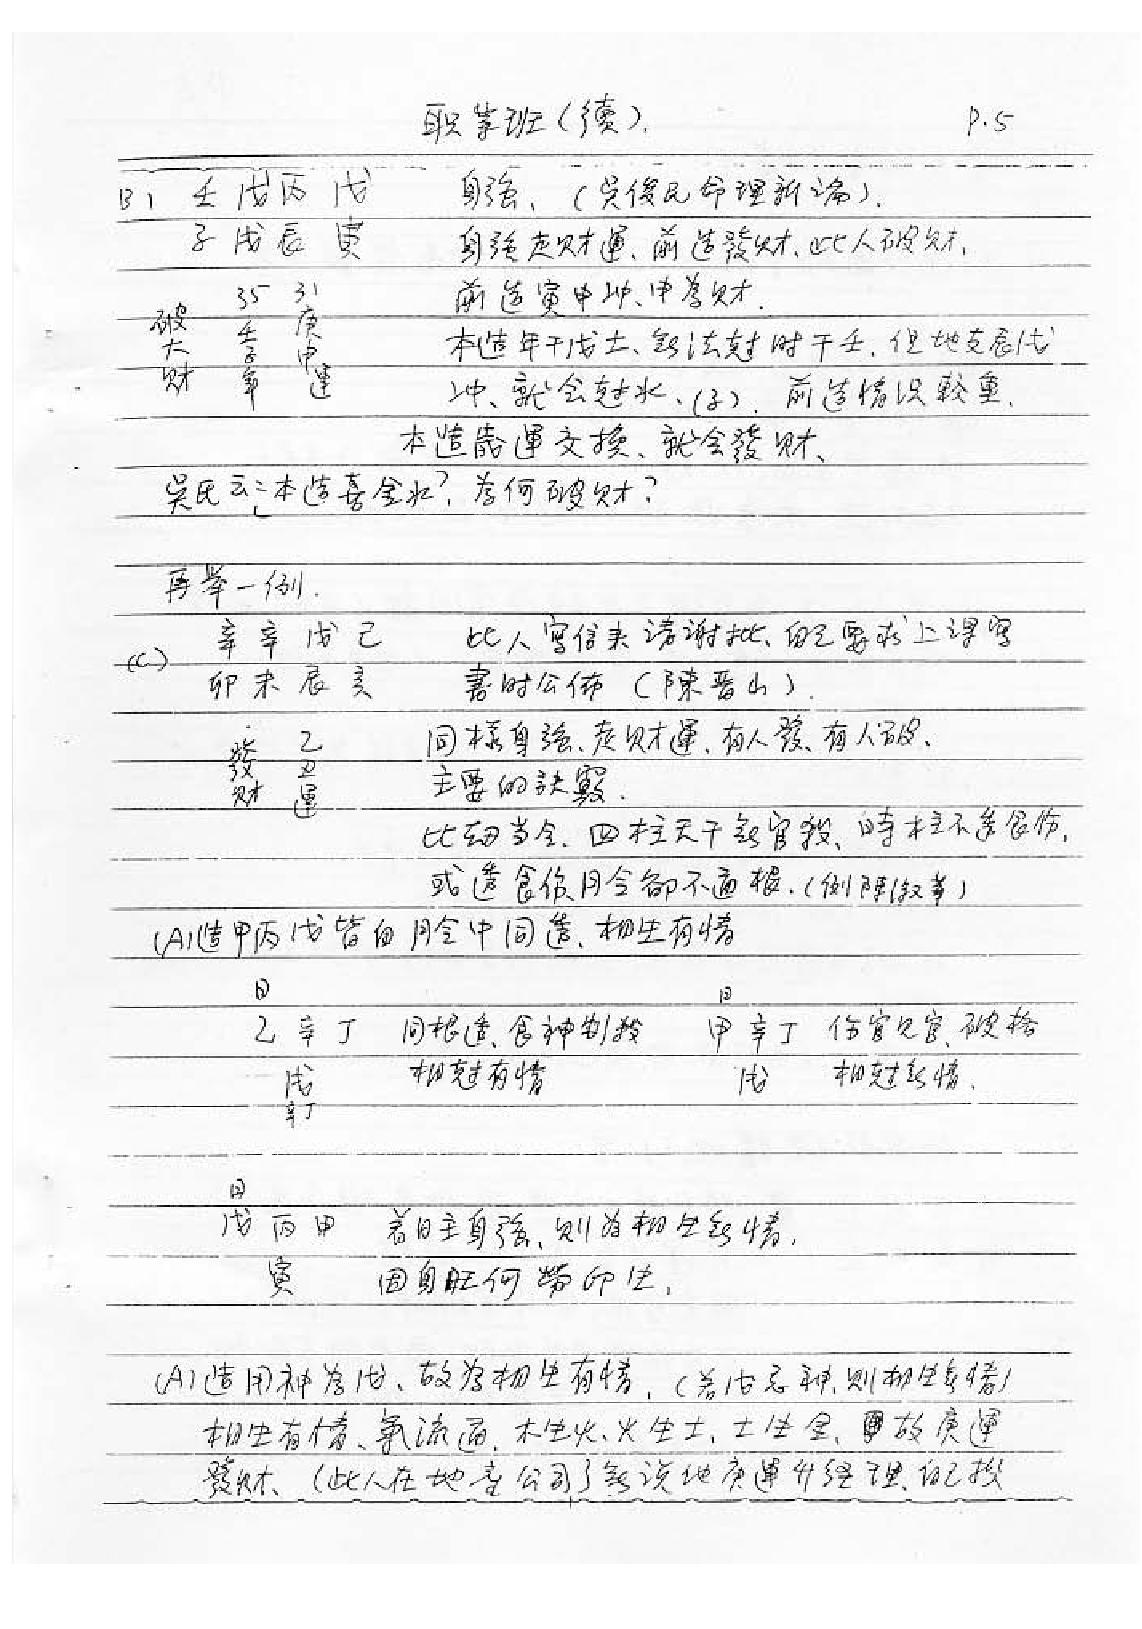 职業班(續). P.5
B) 壬戊丙戊 身強、(吳俊民命理新論).
子戌辰寅 身強走財運、前造發財、此人破財.
35 31 前造寅申冲、申為財.
破大財 壬子年 庚申運 本造年干戊土、無法尅時干壬、但地支辰戌
冲、就会尅水、(子). 前造情况較重.
本造歲運交換、就会發財、
吳氏云:本造喜金水?為何破財?
再举一例.
(C) 辛辛戊己 此人寫信来請謝批、自己要求上課寫
卯未辰亥 書時公佈(陳晋山).
發財 乙丑運 同樣身強、走財運、有人發、有人破、
主要的訣竅.
比刼当令、四柱天干無官殺、時柱不透食伤,
或透食伤月令卻不通根.
(A)造甲丙戊皆自月令中同透、相生有情
日 日
乙辛丁 同根透、食神制殺 甲辛丁 伤官見官、破格
戌 相尅有情 戌 相尅無情.
辛丁
日
戊丙甲 若日主身強、則為相生無情.
寅 因身旺何勞印生.
(A)造用神為戊、故為相生有情.(若戊忌神、則相生無情)
相生有情、氣流通、木生火、火生土、土生金、故庚運
發財、(此人在地産公司)無說他庚運升經理、自己投